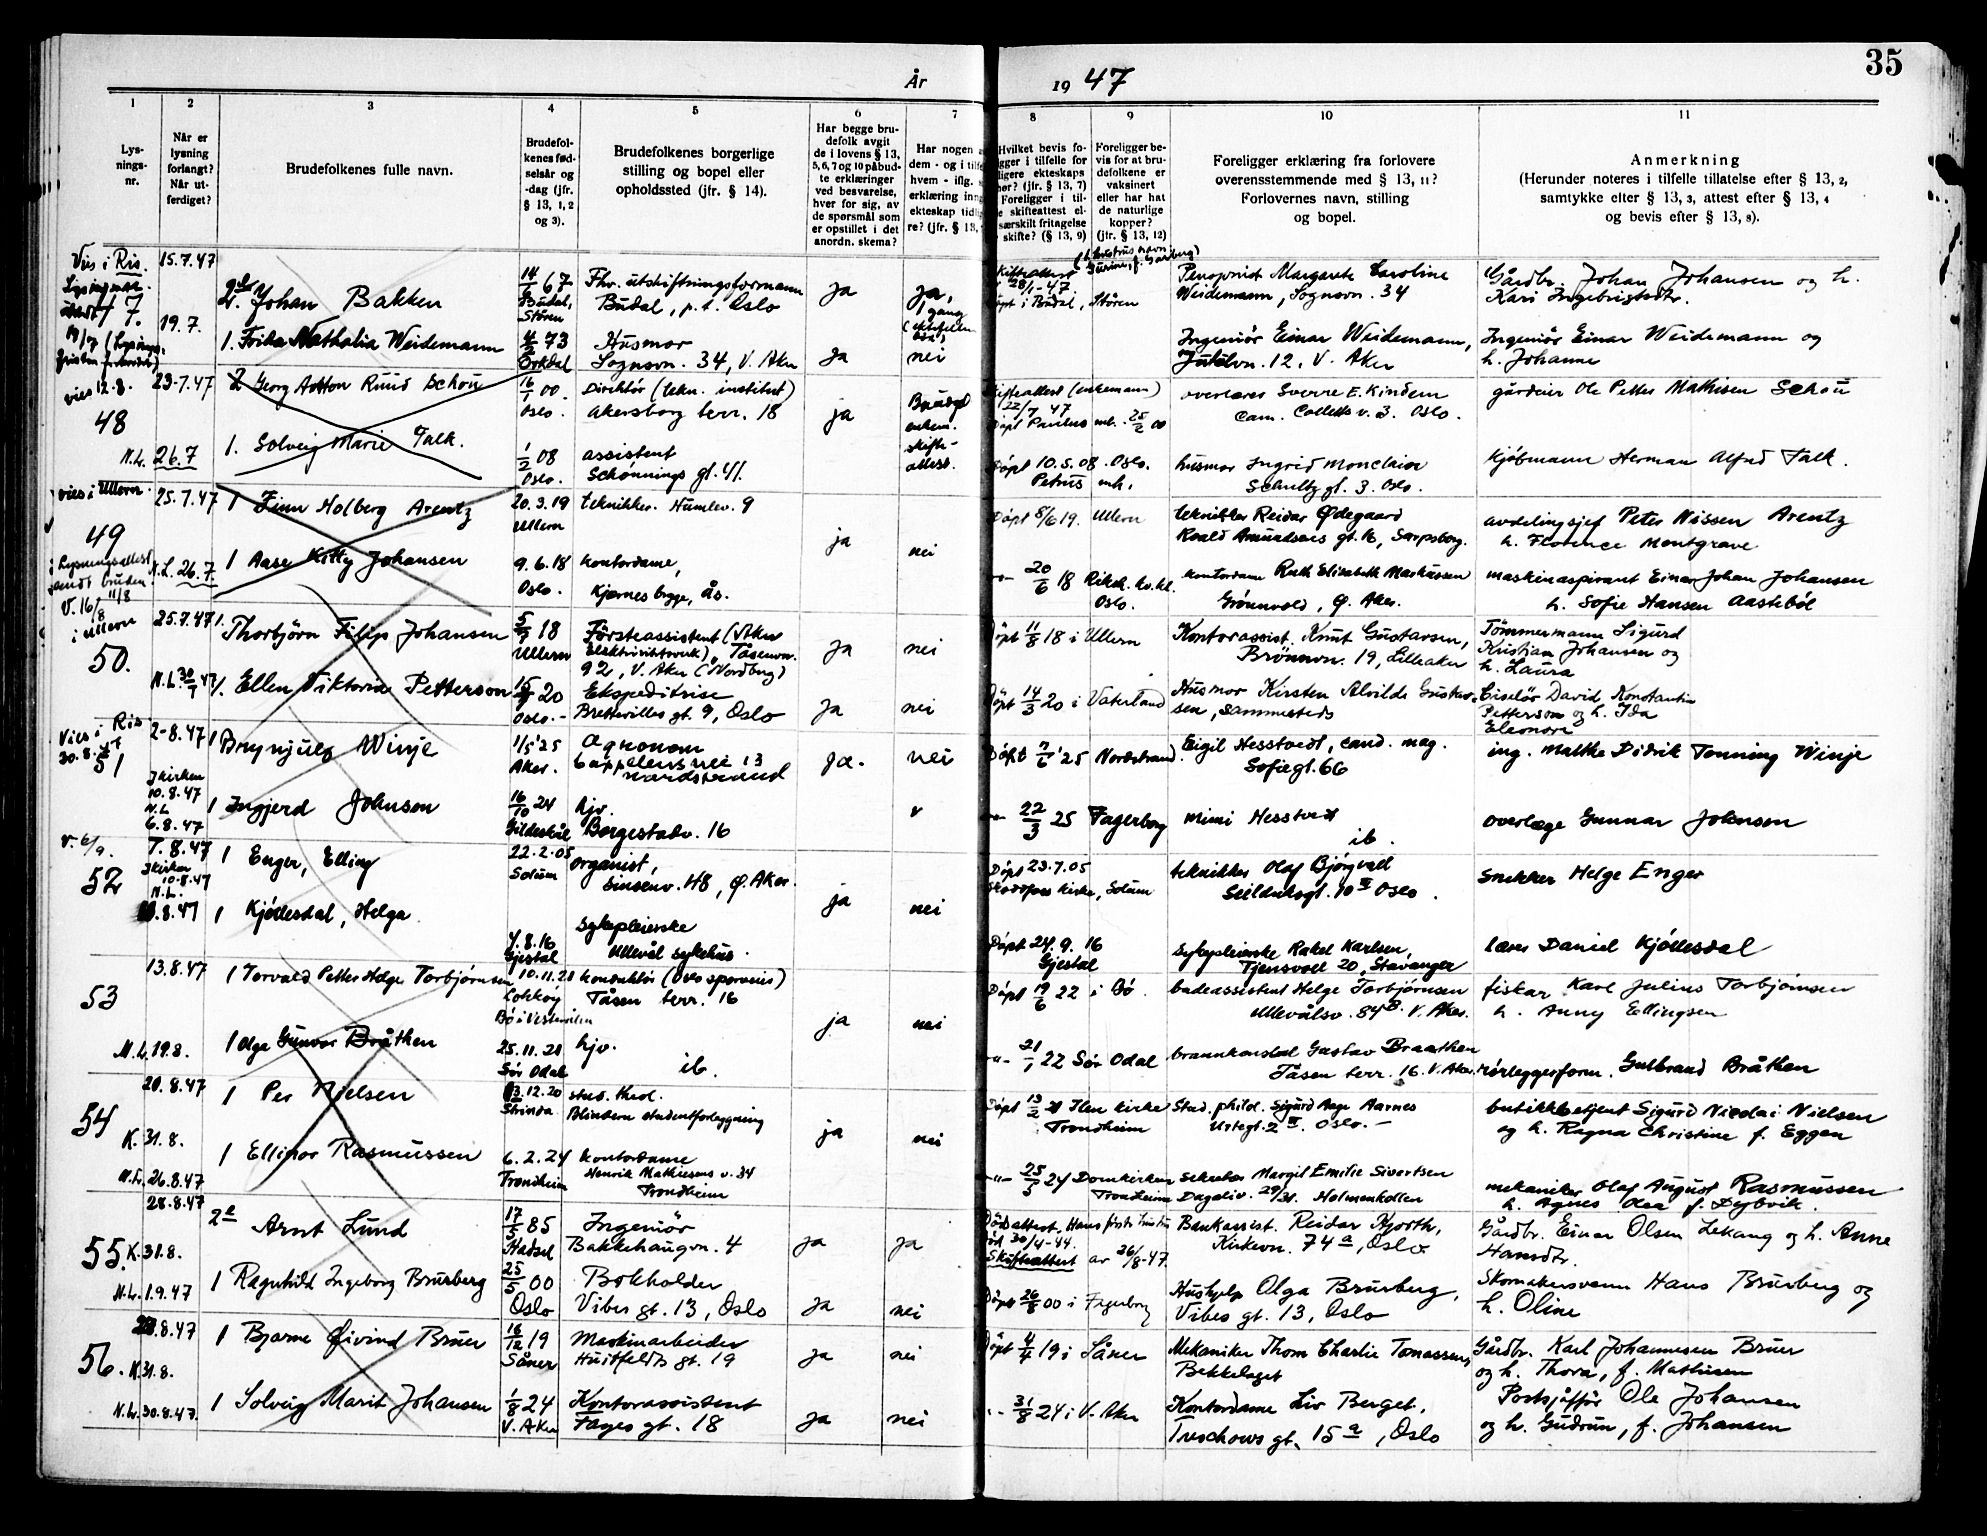 35
År 1947
1 2 3 4 5 6 7 8 9 10 11
Lys-
nings-
nr.
Når er
lysning
forlangt?
Når ut-
ferdiget?
Brudefolkenes fulle navn.
Brudefol-
kenes fød-
selsår og
-dag (jfr.
§ 13, 1, 2
og 3).
Brudefolkenes borgerlige
stilling og bopel eller
opholdssted (jfr. § 14).
Har begge bru-
defolk avgit
de i lovens § 13,
5, 6, 7 og 10 påbud-
te erklæringer
ved besvarelse,
hver for sig, av
de spørsmål som
er opstillet i det
anordn. skema?
Har nogen a
dem - og i tilf
hvem - iflg.
erklæring inng
ekteskap tidl
re? (jfr. § 13,
Hvilket bevis fo-
gger i tilfelle for
ligere ekteskaps
hør? (jfr. § 13, 7)
Foreligger i til-
e skifteattest el-
særskilt fritagelse
skifte? (§ 13, 9)
Foreligger be-
vis for at bru-
defolkene er
vaksinert
eller har hat
de naturlige
kopper?
(jfr. § 13, 12)
Foreligger erklæring fra forlovere
overensstemmende med § 13, 11?
Forlovernes navn, stilling
og bopel.
Anmerkning
(Herunder noteres i tilfelle tillatelse efter § 13, 2,
samtykke efter § 13, 3, attest efter § 13, 4
og bevis efter § 13, 8).
Vies i Ris. 15.7.47
47. 19.7.
2. Johan Bakken 14/1 67 Budal, Støren Fhv. utskiftningsformann Budal, p.t. Oslo ja ja,
28/1-47. Døpt i Budal, Støren Pensjonist Margarete Caroline Weidemann, Sognsvn. 34 Gårdbr. Johan Johansen og h. Kari Ingebrigtsdtr.
1. Frika Nathalia Weidemann 73 Orkdal Husmor Sognsvn. 34, V. Aker ja nei
Ingeniør Einar Weidemann, Jutulvn. 12, V. Aker Ingeniør Einar Weidemann og h. Johanne
vies 12.8. 23-7.47
48 N.L. 26.7
2. Georg Anton Ruud Schou 16/1 00. Oslo. Direktør (tekn. institut) Akersborg terr. 18 ja enkem. skifte-attest.
Skifteattest (enkemann) 22/7 47 Døpt Paulus mb. 25/2 00 overlærer Sverre E. Kindem Cam. Colletts v. 3. Oslo. gårdeier Ole Petter Mathisen Schou
1. Solveig Marie Falk. 1/2 08 Oslo. assistent Schønnings gt. 41.
Døpt 10.5.08. Oslo. Petrus mh. husmor Ingrid Monclair Schultz gt. 3. Oslo. Kjøbmann Herman Alfred Falk.
vies i Ullern 25.7.47
49 N.L. 26.7.
1 Finn Holberg Arentz 20.3.19 Ullern tekniker. Humlev. 9 ja nei
Døpt 8/6 19. Ullern tekniker Reidar Ødegaard Roald Amundsens gt. 16, Sarpsborg. avdelingsjef Peter Nissen Arentz h. Florence Montgrave
Lysningsattest sendt bruden 11/8 V. 16/8 i Ullern
1 Aase Kitty Johansen 9.6.18 Oslo. kontordame, Kjernes brygge, ås.
-"- 20/6 18 Oslo. kontordame Ruth Elisabeth Markussen Grønnvold, Ø. Aker. maskinaspirant Einar Johan Johansen h. Sofie Hansen Aastebøl
25.7.47
50. N.L. 30/7 47
1. Thorbjörn Filip Johansen 5/7 18 Ullern Försteassistent (Aker elektrisitetsverk), Tåsenvn. 92, V. Aker (Nordberg) ja nei
Döpt 11/8 18 i Ullern Kontorassist. Knut Gustavsen, Brönnvn. 19, Lilleaker Tömmermann Sigurd Kristian Johansen og h. Laura
1. Ellen Viktoria Petterson 20 Oslo.- Ekspeditrise Brettevilles gt. 9, Oslo ja nei
Döpt 14/3 20 i Vaterland Husmor Kirsten Alvilde Gustavsen, sammesteds Ciselör David Konstantin Petterson og h. Ida Eleonora
Vies i Ris 30.8.47 2-8.47
51 I kirken 10.8.47 N.L 6.8.47
1 Brynjulf Winje 1/5'25 Aker. Agronom Cappelens vei 13 nordstrand ja. nei
Döpt 7/6'25 Nordstrand. Eigil Hesstvedt, cand. mag. Sofiegt. 66 ing. Maltke Didrik Tonning Winje
1 Ingjerd Johnson 16/10 24 Gildeskål hjv. Borgestadv. 16
-"- 22/3 25 Fagerborg Mimi Hesstvedt ib. overlege Gunnar Johnson
V. 6/9. 7.8.47
52 I kirken 10.8.47 N.L. .8.47
1 Enger, Elling 22.2.05 Solum organist, Sinsenv. 48, Ø. Aker. ja nei
Döpt 23.7.05 kirke, Solum tekniker Olaf Bjørgvall Seilduksgt. 10 II Oslo. Snekker Helge Enger
1 Kjøllesdal, Helga. 4.8.16 Gjestal Sykepleierske Ullevål sykehus.
Döpt 24.9.16 Gjestal Sykepleierske Rakel Karlsen, Tjensvoll 20, Stavanger lærer Daniel Kjøllesdal
13.8.47
53 N.L. 19.8.
1 Torvald Petter Helge Torbjørnsen 10.11.21 Bø i Vesterålen konduktör (Oslo sporveier) Tåsen terr. 16 ja nei
Döpt 19/6 22 i Bø. badeassistent Helge Torbjørnsen Ullevålsv. 84 B. V. Aker. fisker Karl Julius Torbjørnsen h. Anny Ellingsen
1 Olga Gunvor Bråthen 25.11.21 Sør Odal hjv. ib.
-"- 21/1 22 Sør Odal brannkonstal Gustav Braathen Tåsen terr. 16. V. Aker rörleggerform. Gulbrand Bråthen
20.8.47
54 K. 31.8. N.L. 26.8.47
1 Per Nielsen .12.20 Strinda. stud. theol. Blindern studentforleggning ja nei
Döpt 13/2 21 Ilen kirke Trondheim Stud. phild. Sigurd Aage Aarnes Urtegt. 2 II. Oslo.- butikkbetjent Sigurd Nicolai Nielsen og h. Ragna Christine f. Eggen
1 Ellinor Rasmussen 6.2.24 Trondheim kontordame Henrik Mathiesens v. 34 Trondheim
-"- 25/5 24 Domkirken Trondheim Sekretær Margit Emilie Sivertsen Dagaliv. 29/31. Holmenkollen mekaniker Olaf August Rasmussen h. Agnes Olea f. Dybvik.
28.8.47
55. K. 31.8. N.L. 1.9.47
2 Arnt Lund 17/5 85 Hadsel Ingeniör Bakkehaugvn. 4 ja ja
Dødsattest. Hans förste hustru død 30/4-44. Skifteattest av 26/8-47. Bankassist. Reidar Hjorth, Kirkevn. 74 a, Oslo Gårdbr. Einar Olsen Lekang og h. Anne Hansdtr.
1 Ragnhild Ingeborg Brurberg 25/5 00 Oslo Bokholder Vibes gt. 13, Oslo ja nei
Döpt 26/8 00 i Fagerborg Hushjelp Olga Brurberg, Vibes gt. 13, Oslo Skomakersvenn Hans Brurberg og h. Oline
.8.47
56. K. 31.8. N.L. 30.8.47.
1 Bjarne Øivind Bruer 16/12 19 Såner Maskinarbeider Huitfeldts gt. 19 ja nei
Döpt 4/4 19 i Såner Mekaniker Thom Charlie Tomassen, Bekkelaget Gårdbr. Karl Johannesen Bruer og h. Thora, f. Mathisen
1 Solveig Marit Johansen 1/8 24 V. Aker Kontorassistent Fages gt. 18 ja nei
-"- 31/8 24 i V. Aker Kontordame Liv Berget, Treschows gt. 15 a, Oslo Postsjåfför Ole Johansen og h. Gudrun, f. Johansen